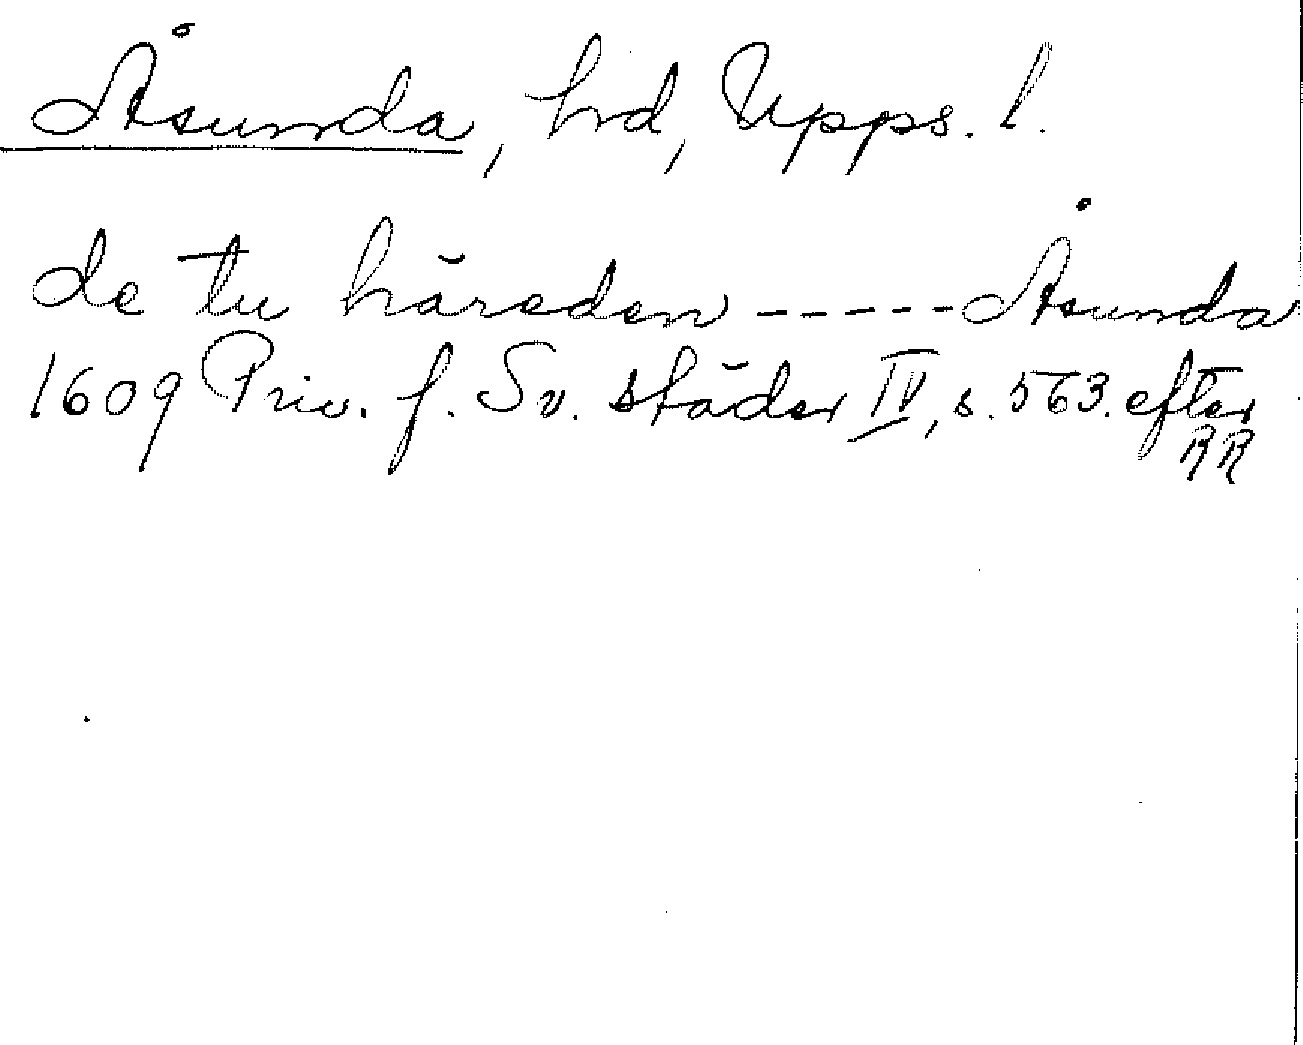 Åsunda, hd, Upps. l.
de tu häreden ----- Åsunda
1609 Priv. f. Sv. städer IV, s. 563. efter
RR